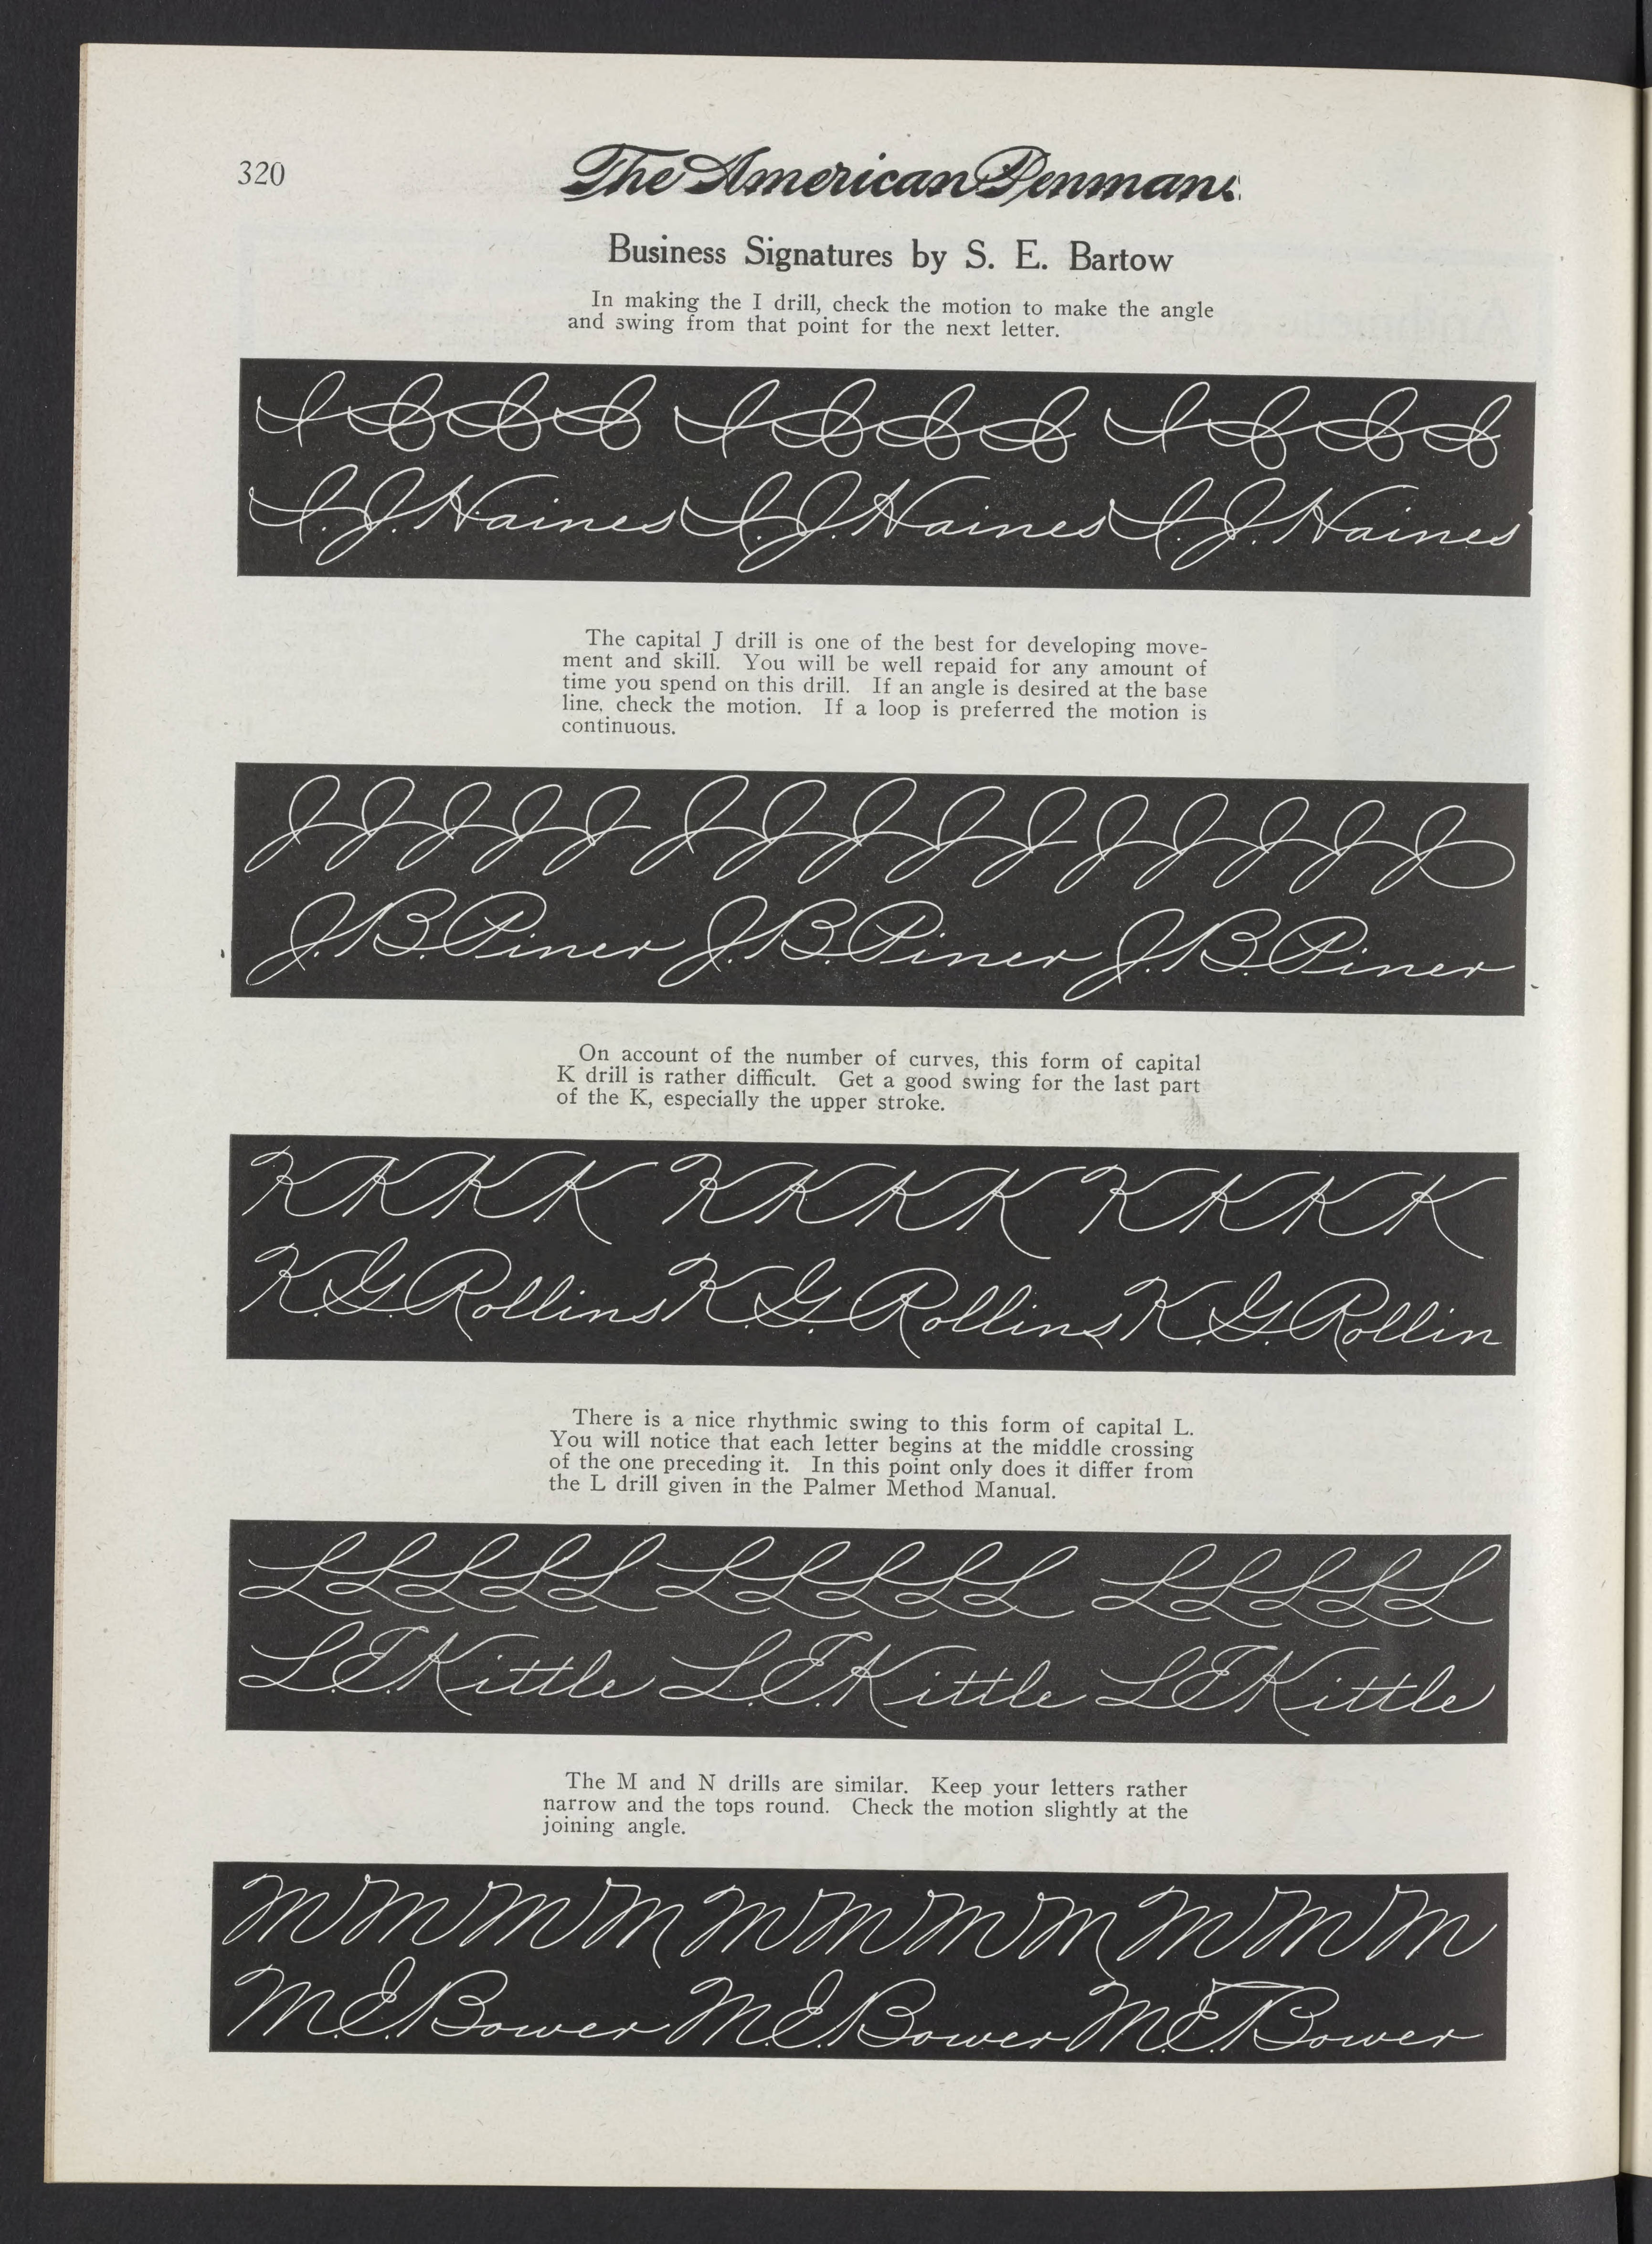 320
The American Penman
Business Signatures by S. E. Bartow
In making the I drill, check the motion to make the angle
and swing from that point for the next letter.
I I I I I I I I I I I I
I. J. Haines I. J. Haines I. J. Haines
The capital J drill is one of the best for developing move-
ment and skill. You will be well repaid for any amount of
time you spend on this drill. If an angle is desired at the base
line, check the motion. If a loop is preferred the motion is
continuous.
J J J J J J J J J J J J J J J
J. B. Piner J. B. Piner J. B. Piner
On account of the number of curves, this form of capital
K drill is rather difficult. Get a good swing for the last part
of the K, especially the upper stroke.
K K K K K K K K K K K K
K. G. Rollins K. G. Rollins K. G. Rollin
There is a nice rhythmic swing to this form of capital L.
You will notice that each letter begins at the middle crossing
of the one preceding it. In this point only does it differ from
the L drill given in the Palmer Method Manual.
L L L L L L L L L L L L L L L
L. E. Kittle L. E. Kittle L. E. Kittle
The M and N drills are similar. Keep your letters rather
narrow and the tops round. Check the motion slightly at the
joining angle.
M M M M M M M M M M M
M. E. Bower M. E. Bower M. E. Bower